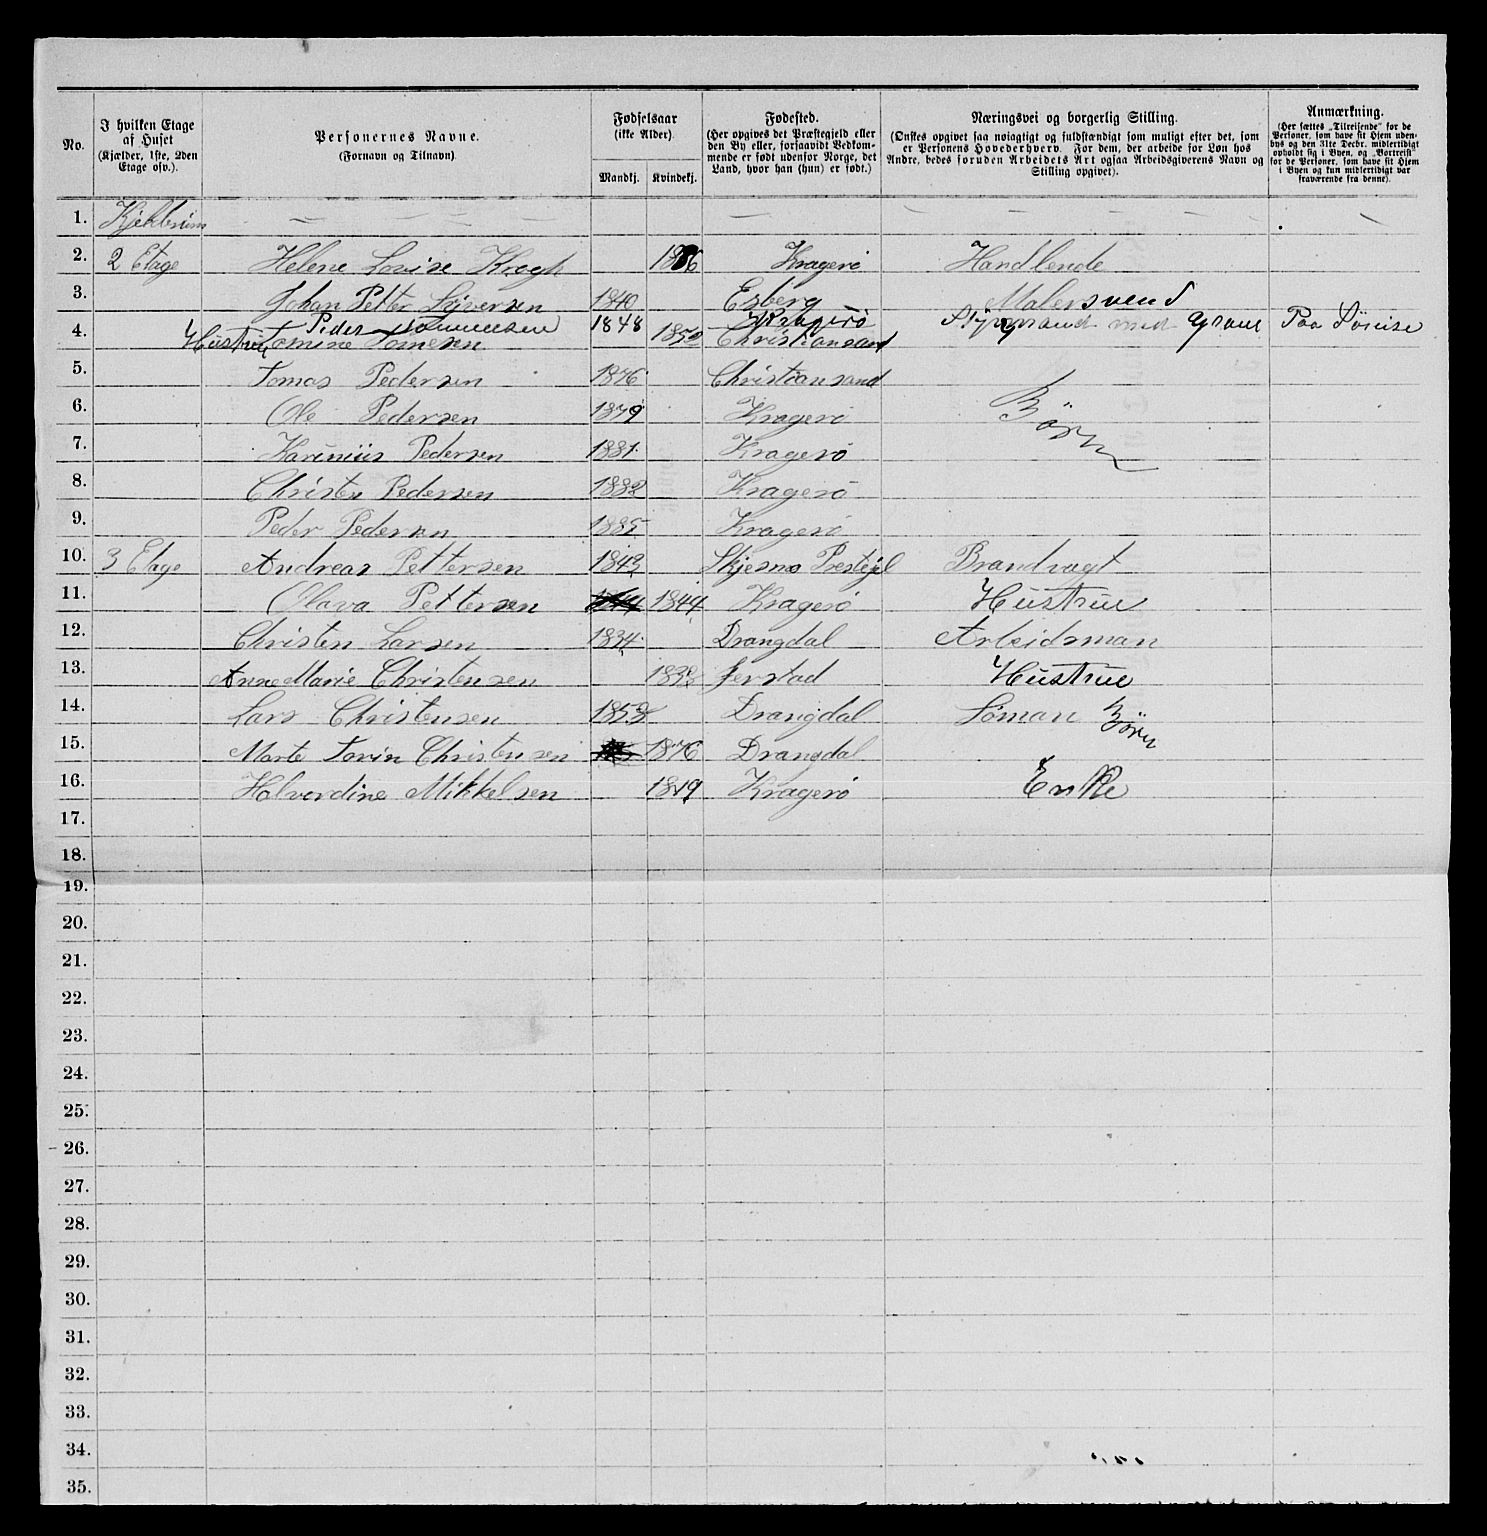 No.
I hvilken Etage af Huset (Kjælder, 1ste, 2den Etage osv.).
Personernes Navne. (Fornavn og Tilnavn)
Fødselsaar (ikke Alder). Mandkj. Kvindekj.
Fødested. (Her opgives det Præstegjeld eller den By eller, forsaavidt Vedkommende er født udenfor Norge, det Land, hvor han (hun) er født.)
Næringsvei og borgerlig Stilling. (Ønskes opgivet saa nøiagtigt og fuldstændigt som muligt efter det, som er Personens Hovederhverv. For dem, der arbeide for Løn hos Andre, bedes foruden Arbeidets Art ogsaa Arbeidsgiverens Navn og Stilling opgivet).
Anmærkning. (Her sættes „Tilreisende“ for de Personer, som have sit Hjem udenbys og den 31te Decbr. midlertidigt opholdt sig i Byen, og „Bortreist“ for de Personer, som have sit Hjem i Byen og kun midlertidigt var fraværende fra denne).
1. – – – – – – – – –
2. 2 Etage Helene Lovise Krogh Kragerö Handlende
3. Johan Petter 1840 Esberg Malersvend
Peder 1848 Kragerö med
4. Hustru Tomine Tomesen 1852 Christiansand
5. Tomas Pedersen 1876 Christiansand
6. Ole Pedersen 1879 Kragerö Börn
7. Karinius Pedersen 1881 Kragerö
8. Christen Pedersen 1882 Kragerö
9. Peder Pedersen 1885 Kragerö
10. 3 Etage Andreas Pettersen 1843 Brandvagt
11. Olava Pettersen 1844 Kragerö Hustrue
12. Christen Larsen 1834 Drangdal Arbeidsman
13. Anne Marie Christensen Jerstad Hustrue
14. Lars Christensen Drangdal Söman Börn
15. Marte Torin Christensen 1876 Drangdal
16. Halvordine Mikkelsen 1819 Kragerö Enke
17.
18.
19.
20.
21.
22.
23.
24.
25.
26.
27.
28.
29.
30.
31.
32.
33.
34.
35.